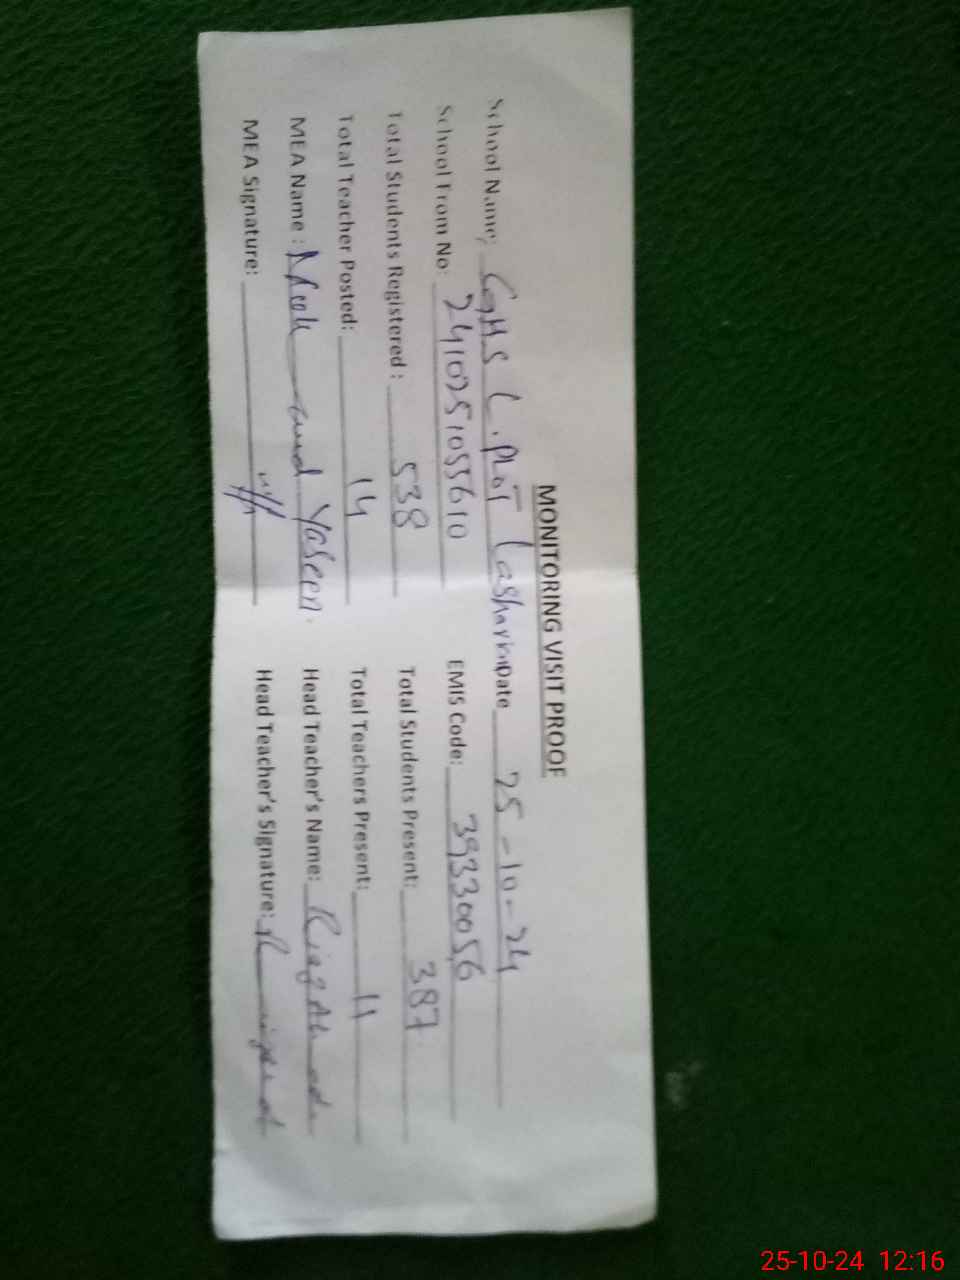 MONITORING VISIT PROOF
School Name; GHS L.PLOT Lashari Date 25-10-24
School From No: 2410251055610 EMIS Code: 39330056
Total Students Registered: 538 Total Students Present: 387
Total Teacher Posted: 14 Total Teachers Present: 11
MEA Name: Yaseen. Head Teacher's Name:
MEA Signature: Head Teacher's Signature:
25-10-24 12:16